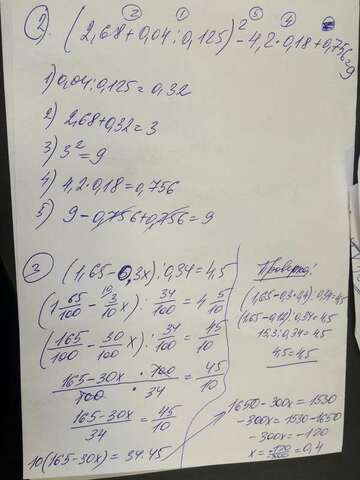 2) (2,68+0,04:0,125)² - 4,2·0,18+0,756=9
1) 0,04:0,125=0,32
2) 2,68+0,32=3
3) 3²=9
4) 4,2·0,18=0,756
5) 9-0,756+0,756=9
3 (1,65-0,3x):0,34=4,5
(1 65/100 - 3/10 x) : 34/100 = 4 5/10
(165/100 - 30/100 x) : 34/100 = 45/10
165-30x/100 · 100/34 = 45/10
165-30x/34 = 45/10
10(165-30x)=34·45
Проверка:
(1,65-0,3·0,4):0,34=4,5
(1,65-0,12):0,34=4,5
1,53:0,34=4,5
4,5=4,5
1650-300x=1530
-300x=1530-1650
-300x=-120
x=-120/-300=0,4